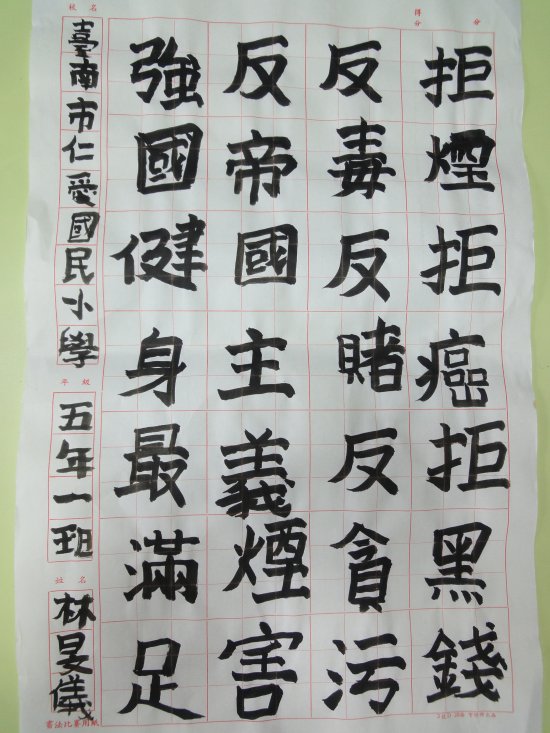 得分　　分
拒煙拒癌拒黑錢
反毒反賭反貪污
反帝國主義煙害
強國健身最滿足
校名
臺南市仁愛國民小學
年級
五年一班
姓名
林旻儀
書法比賽用紙